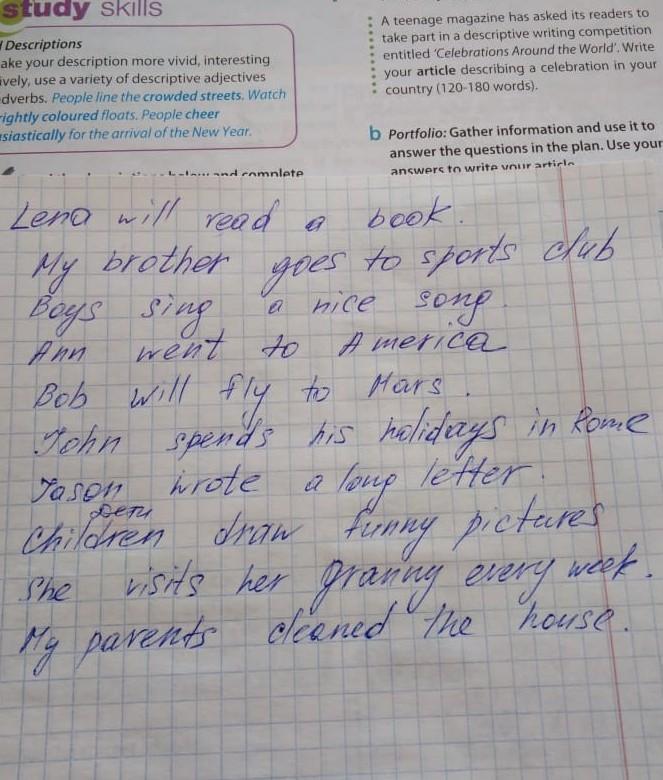 study skills
Descriptions
ake your description more vivid, interesting
ively, use a variety of descriptive adjectives
dverbs. People line the crowded streets. Watch
rightly coloured floats. People cheer
siastically for the arrival of the New Year.
below and complete
A teenage magazine has asked its readers to
take part in a descriptive writing competition
entitled 'Celebrations Around the World'. Write
your article describing a celebration in your
country (120-180 words).
b Portfolio: Gather information and use it to
answer the questions in the plan. Use your
answers to write your article
Lena will read a book.
My brother goes to sports club
Boys sing a nice song.
Ann went to America
Bob will fly to Mars.
John spends his holidays in Rome
Jason wrote a long letter.
Дети
Children draw funny pictures
She visits her granny every week.
My parents cleaned the house.